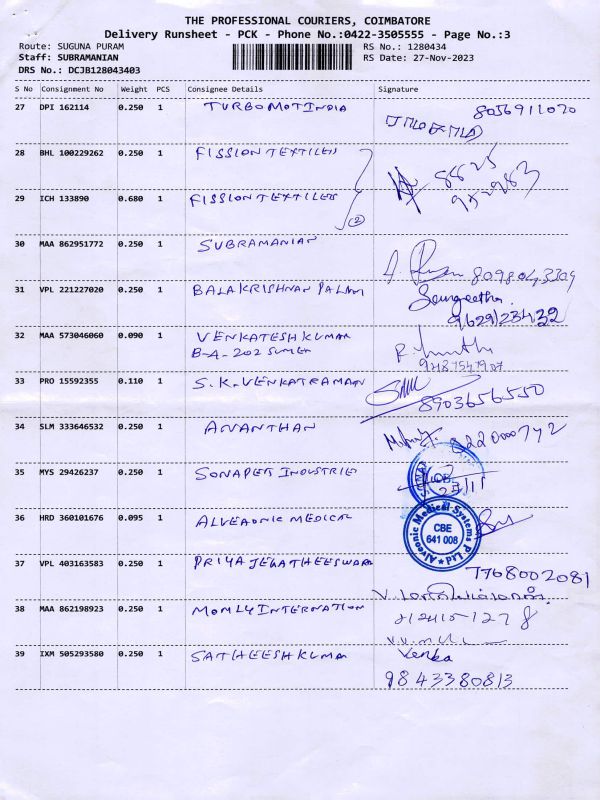 THE PROFESSIONAL COURIERS, COIMBATORE
Delivery Runsheet - PCK - Phone No.:0422-3505555 - Page No.:3
Route: SUGUNA PURAM RS No.: 1280434
Staff: SUBRAMANIAN RS Date: 27-Nov-2023
DRS No.: DCJB128043403
S No Consignment No Weight PCS Consignee Details Signature
27 DPI 162114 0.250 1 TURBOMOTINDIA 8056911070
28 BHL 100229262 0.250 1 FISSIONTEXTILES 8825
29 ICH 133890 0.680 1 FISSIONTEXTILES 952983
(2)
30 MAA 862951772 0.250 1 SUBRAMANIAN
31 VPL 221227020 0.250 1 BALAKRISHNAN PALANI Sangeetha
9629123432
32 MAA 573046060 0.090 1 VENKATESHKUMAR
B-A-202
33 PRO 15592355 0.110 1 S.K.VENKATRAMAN 8903656550
34 SLM 333646532 0.250 1 ANANTHAN 8220000742
35 MYS 29426237 0.250 1 SONAPET INDUSTRIE
36 HRD 360101676 0.095 1 ALVEAONIC MEDICAL
Alveonic Medical Systems P Ltd
CBE
641 008
37 VPL 403163583 0.250 1 PRIYA JEGATHEESWARA 7768002081
38 MAA 862198923 0.250 1 MOMLY INTERNATION
39 IXM 505293580 0.250 1 SATHEESHKUMA Venka
9843380813